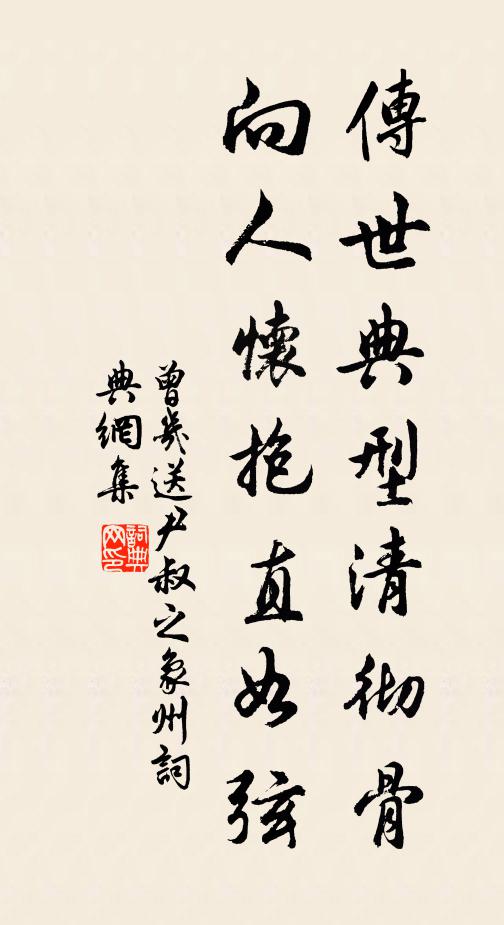 傳世典型清彻骨
向人懷抱直如弦
曾幾送尹叔之象州詞
典網集
詞典
网印